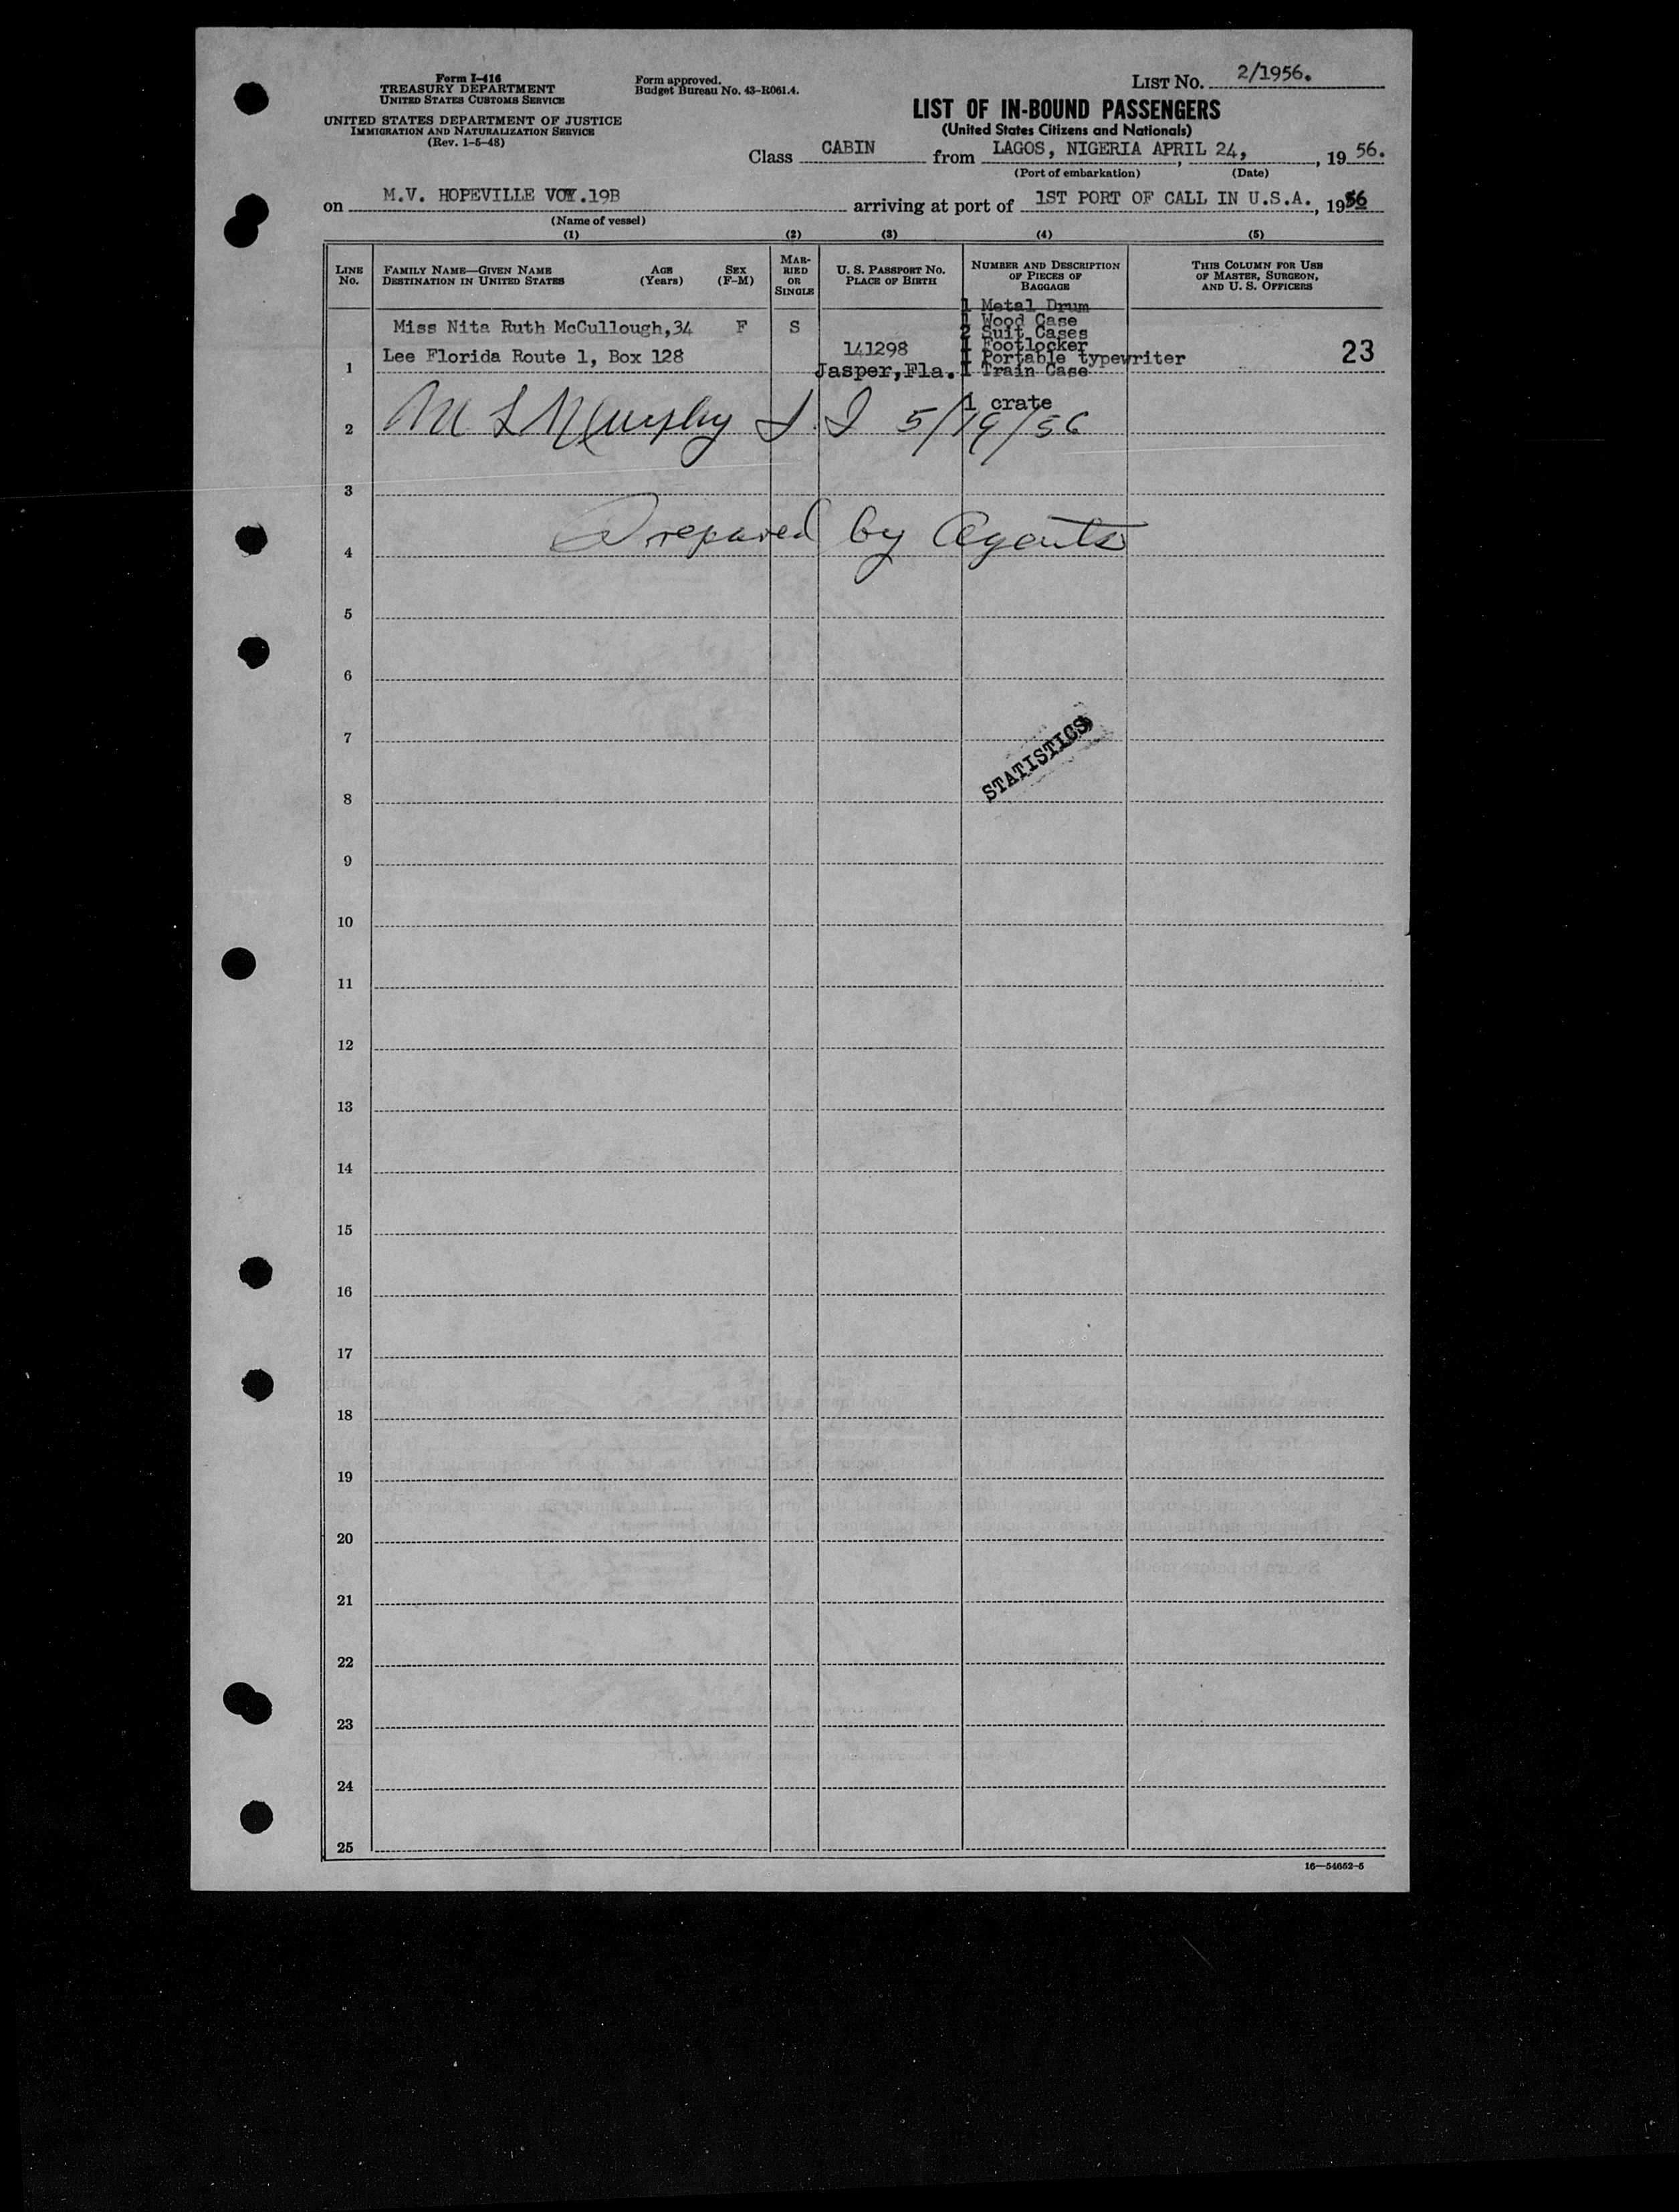 Form I-416
TREASURY DEPARTMENT
UNITED STATES CUSTOMS SERVICE
UNITED STATES DEPARTMENT OF JUSTICE
IMMIGRATION AND NATURALIZATION SERVICE
(Rev. 1-5-48)
Form approved.
Budget Bureau No. 43-R061.4.
LIST No. 2/1956.
LIST OF IN-BOUND PASSENGERS
(United States Citizens and Nationals)
Class CABIN from LAGOS, NIGERIA APRIL 24, , 19 56.
(Port of embarkation) (Date)
on M.V. HOPEVILLE VOY.19B arriving at port of 1ST PORT OF CALL IN U.S.A., 1956
(Name of vessel)
(1) (2) (3) (4) (5)
LINE No.
FAMILY NAME—GIVEN NAME
DESTINATION IN UNITED STATES
AGE (Years)
SEX (F-M)
MARRIED OR SINGLE
U. S. PASSPORT No.
PLACE OF BIRTH
NUMBER AND DESCRIPTION OF PIECES OF BAGGAGE
THIS COLUMN FOR USE OF MASTER, SURGEON, AND U. S. OFFICERS
1 Metal Drum
Miss Nita Ruth McCullough, 34 F S 1 Wood Case
2 Suit Cases
141298 1 Footlocker
Lee Florida Route 1, Box 128 1 Portable typewriter 23
1 Jasper, Fla. 1 Train Case
1 crate
2 M L Murphy I. I 5/19/56
3
Prepared by Agents
4
5
6
7
STATISTICS
8
9
10
11
12
13
14
15
16
17
18
19
20
21
22
23
24
25
16—54652-5